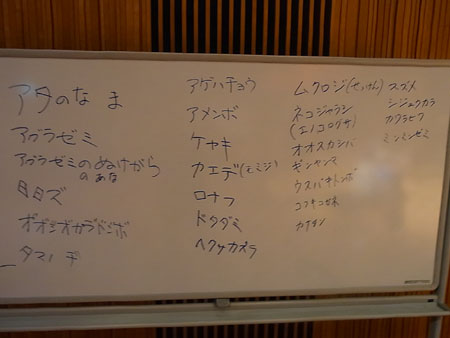 アタのなま
アブラゼミ
アブラゼミのぬけがら
のあな
ミミズ
オオシオカラトンボ
アゲハチョウ
アメンボ
ケヤキ
カエデ(モミジ)
ドクダミ
ヘクソカズラ
ムクロジ(せっけん)
ネコジャラシ
(エノコログサ)
オオスカシバ
ギンヤンマ
ウスバキトンボ
スズメ
シジュウカラ
カワラヒワ
ミンミンゼミ